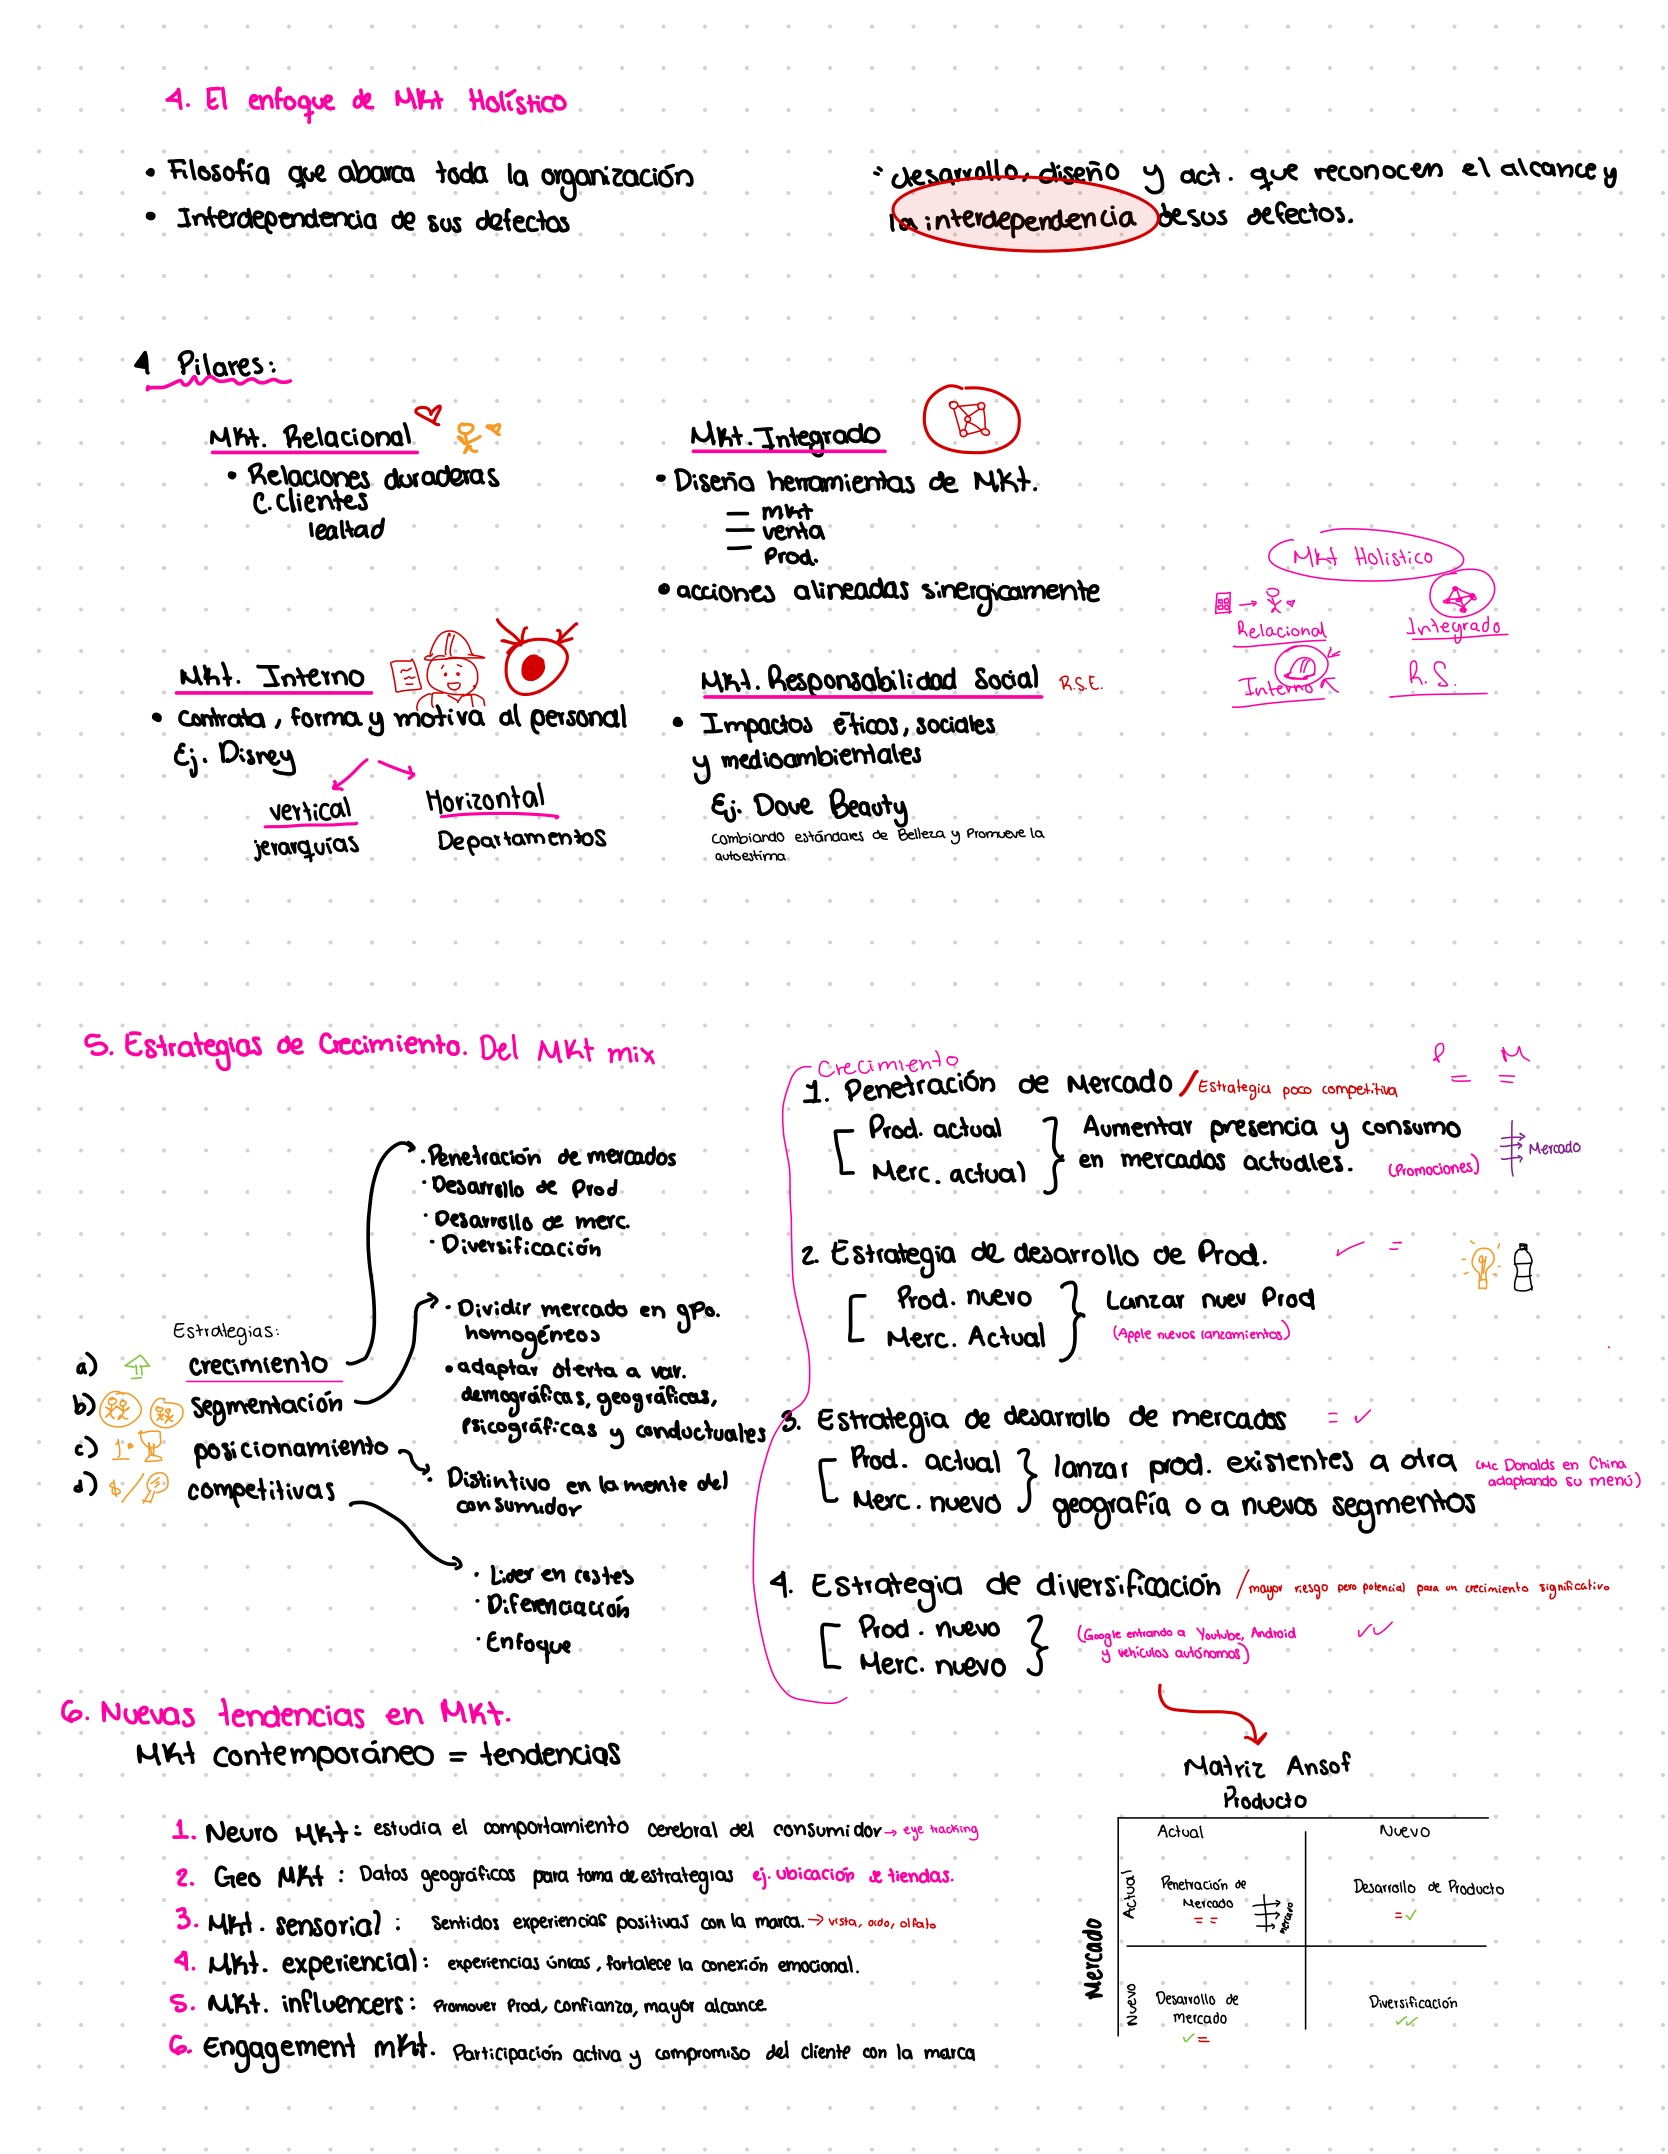 4. El enfoque de Mkt Holístico
• Filosofía que abarca toda la organización
• Interdependencia de sus defectos
" desarrollo, diseño y act. que reconocen el alcance y
la interdependencia de sus defectos.
4 Pilares:
Mkt. Relacional
• Relaciones duraderas
C. Clientes
lealtad
Mkt. Integrado
• Diseña herramientas de Mkt.
— mkt
— venta
— Prod.
• acciones alineadas sinergicamente
Mkt. Interno
• contrata, forma y motiva al personal
Ej. Disney
vertical
jerarquías
Horizontal
Departamentos
Mkt. Responsabilidad Social R.S.E.
• Impactos éticos, sociales
y medioambientales
Ej. Dove Beauty
Cambiando estándares de Belleza y Promueve la
autoestima
Mkt Holistico
Relacional
Integrado
Interno
R.S.
5. Estrategias de Crecimiento. Del Mkt mix
Estrategias:
a) crecimiento
b) segmentación
c) 1° posicionamiento
d) $/ competitivas
· Penetración de mercados
· Desarrollo de Prod
· Desarrollo de merc.
· Diversificación
· Dividir mercado en gpo.
homogéneos
• adaptar oferta a var.
demográficas, geográficas,
psicográficas y conductuales
· Distintivo en la mente del
consumidor
· Lider en costes
· Diferenciación
· Enfoque
Crecimiento
P M
= =
1. Penetración de Mercado / Estrategia poco competitiva
Prod. actual
Merc. actual
Aumentar presencia y consumo
en mercados actuales. (Promociones)
Mercado
2. Estrategia de desarrollo de Prod. ✓ =
Prod. nuevo
Merc. Actual
Lanzar nuev Prod
(Apple nuevos lanzamientos)
3. Estrategia de desarrollo de mercados = ✓
Prod. actual
Merc. nuevo
lanzar prod. existentes a otra
geografía o a nuevos segmentos
(Mc Donalds en China
adaptando su menú)
4. Estrategia de diversificación / mayor riesgo pero potencial para un crecimiento significativo
Prod. nuevo
Merc. nuevo
(Google entrando a Youtube, Android
y vehículos autónomos)
✓✓
6. Nuevas tendencias en Mkt.
Mkt contemporáneo = tendencias
1. Neuro Mkt: estudia el comportamiento cerebral del consumidor → eye tracking
2. Geo Mkt: Datos geográficos para toma de estrategias ej. ubicación de tiendas.
3. Mkt. sensorial: Sentidos experiencias positivas con la marca. → vista, oido, olfato
4. Mkt. experiencial: experiencias únicas, fortalece la conexión emocional.
5. Mkt. influencers: Promover Prod, confianza, mayor alcance
6. Engagement mkt. Participación activa y compromiso del cliente con la marca
Matriz Ansof
Producto
Actual Nuevo
Mercado
Actual
Penetración de
Mercado
= =
mercado
Desarrollo de Producto
= ✓
Nuevo
Desarrollo de
mercado
✓ =
Diversificación
✓✓